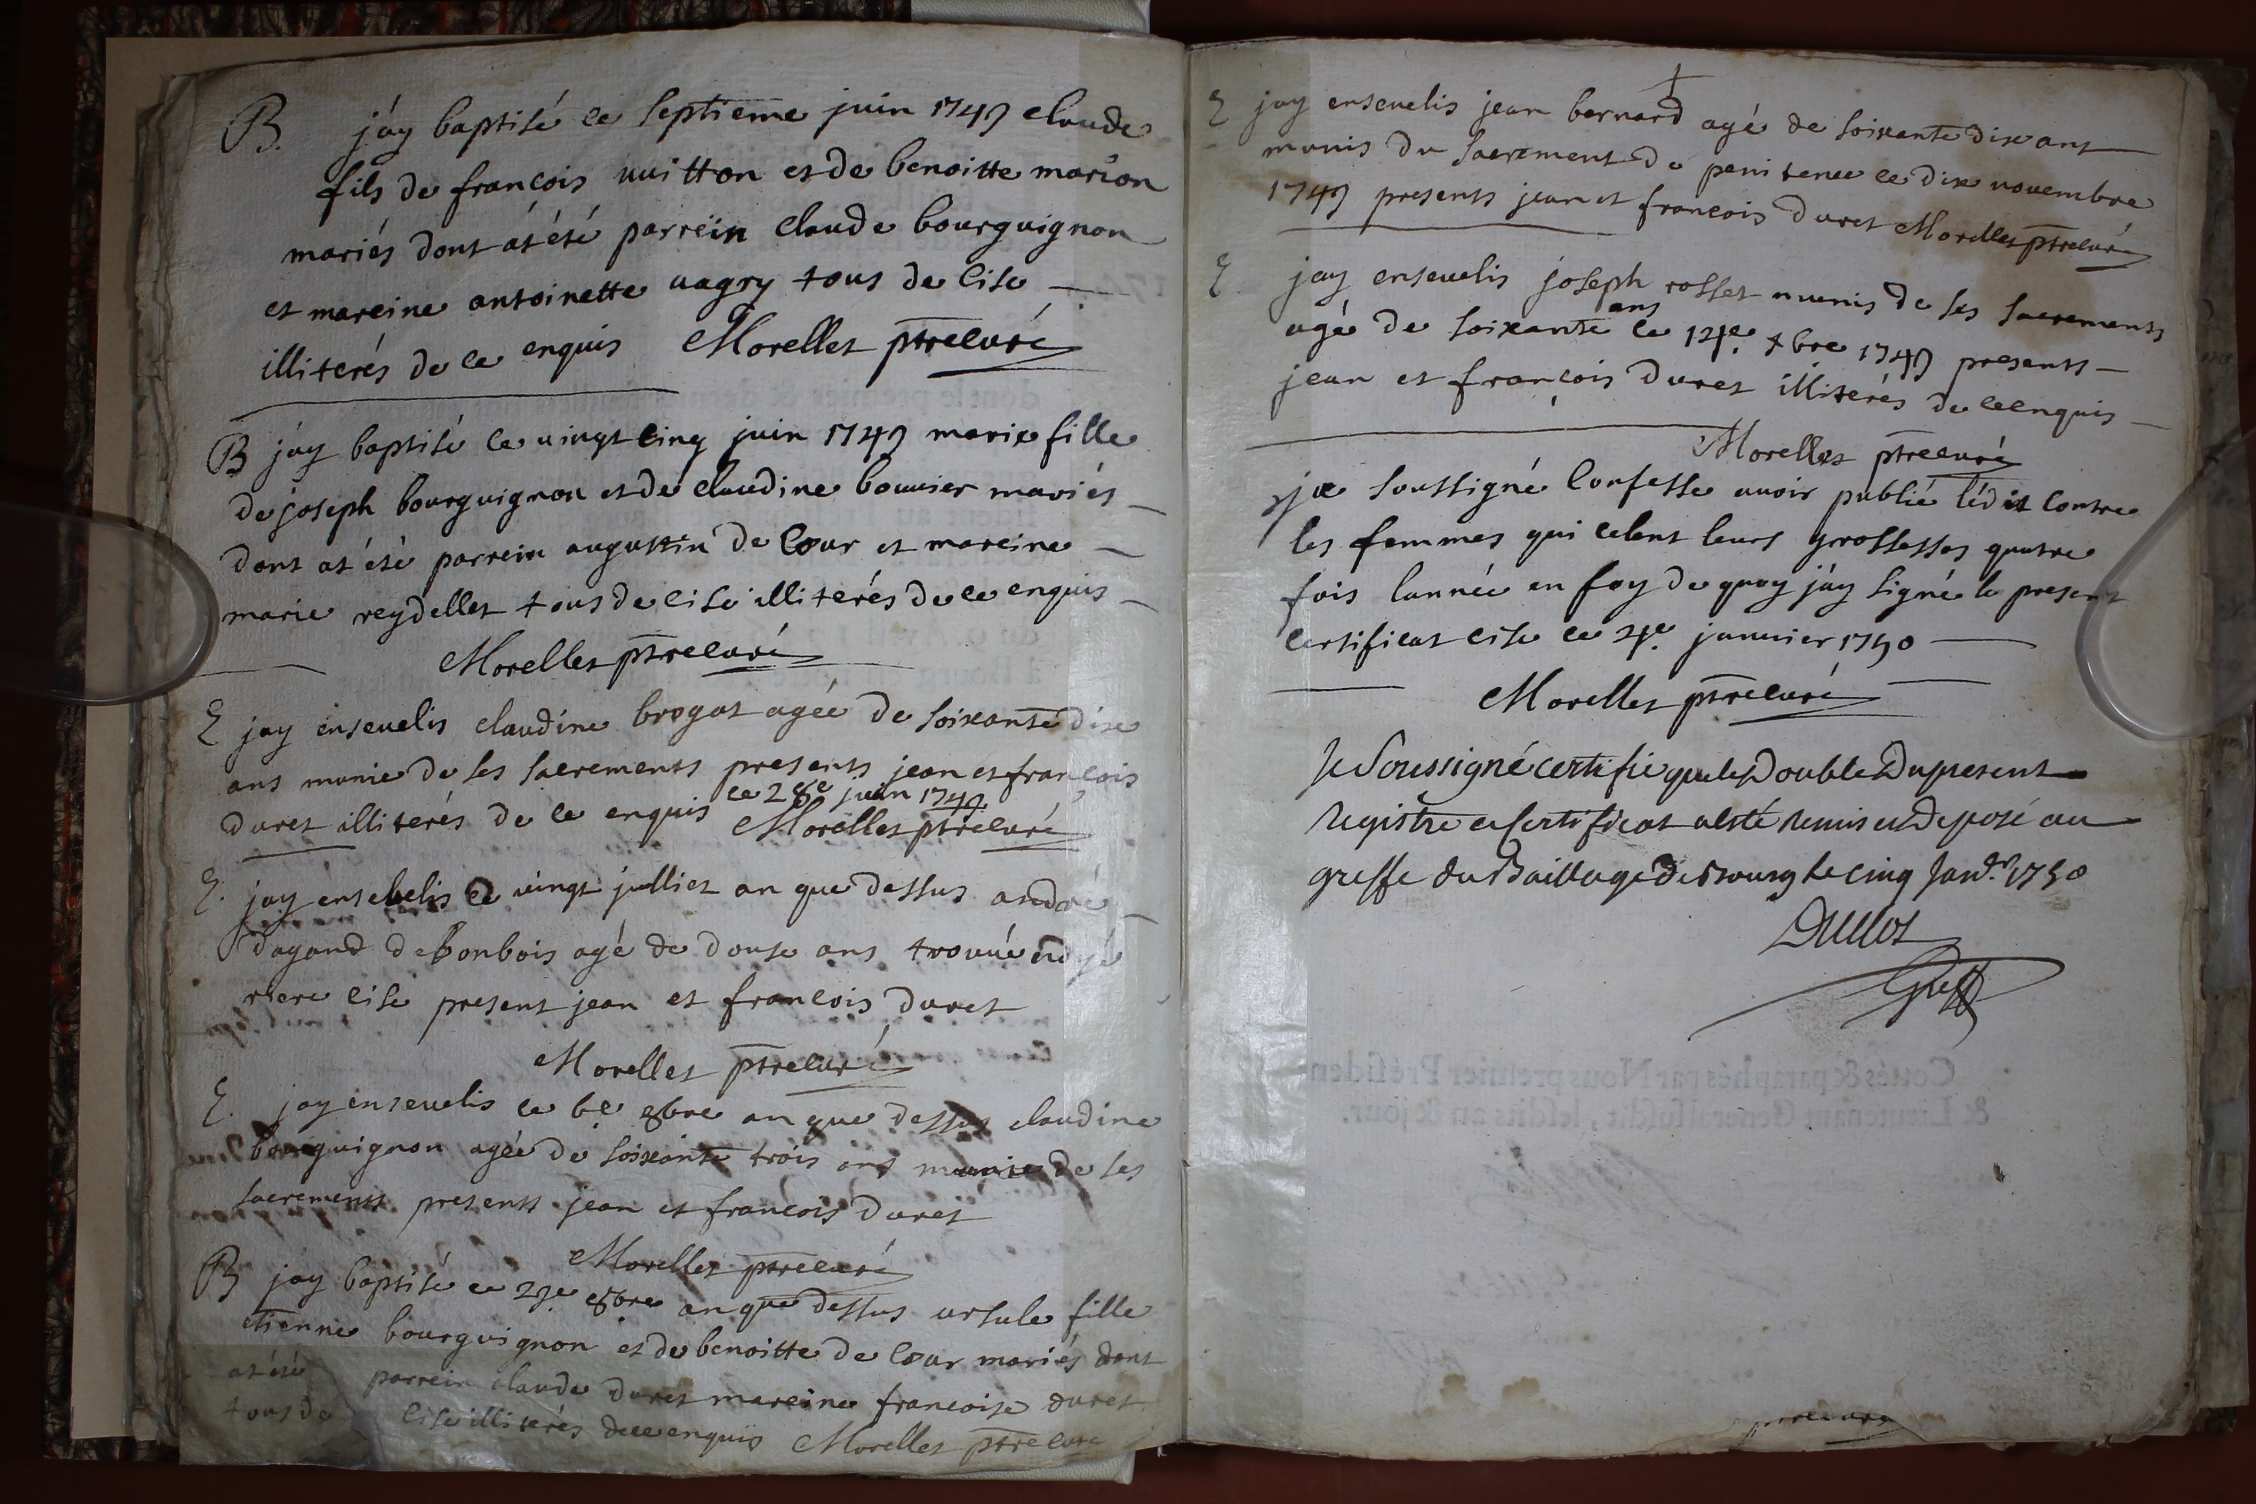 B. j'ay baptisé le septieme juin 1749 claude
fils de francois vuitton et de benoitte marion
mariés dont at été parrein claude bourguignon
et mareine antoinette vagry tous de Cise
illiterés de ce enquis Morellet ptre curé
B j'ay baptisé le vingt cinq juin 1749 marie fille
de joseph bourguignon et de claudine bouvier mariés
dont at été parrein augustin de Cour et mareine
marie reydellet tous de cise illiterés de ce enquis
Morellet ptre curé
E jay ensevelis claudine brogat agée de soixante dixe
ans munie de ses sacrements presents jean et francois
duret illiterés de ce enquis le 28e juin 1749 Morellet ptre curé
E. jay ensebelis le vingt julliet an que dessus andre
dagand de bonbois agé de douse ans trouvé
riere cise present jean et francois duret
Morellet ptre curé
E. jay ensevelis le 6e 8bre an que dessus claudine
bourguignon agée de soixante trois ans munie de ses
sacrements presents jean et francois duret
Morellet ptre curé
B jay baptisé le 29e 8bre an que dessus ursule fille
etienne bourguignon et de benoitte de Cour mariés dont
at été parrein claude duret mareine francoise duret
tous de cise illiterés de ce enquis Morellet ptre curé
E jay ensevelis jean bernard agé de soixante dix ant
munis du sacrement de penitence le dix novembre
1749 presents jean et francois duret Morellet ptre curé
E. jay ensevelis joseph rosset munis de ses sacrements
agé de soixante ans le 14e xbre 1749 presents
jean et francois duret illiterés de ce enquis
Morellet ptre curé
je soussigné Confesse avoir publié lédit contre
les femmes qui celent leurs grossesses quatre
fois lannée en foy de quoy j'ay signé le present
certificat cise le 4e janvier 1750
Morellet ptre curé
Je Soussigné certifie que le Double du present
Registre et Certificat a esté remis et deposé au
greffe du Baillage de Bourg le cinq Janv.r 1750
Duclos
Greff
Cottés & paraphés par Nous premier Président
& Lieutenant General susdit, lesdits an & jour.